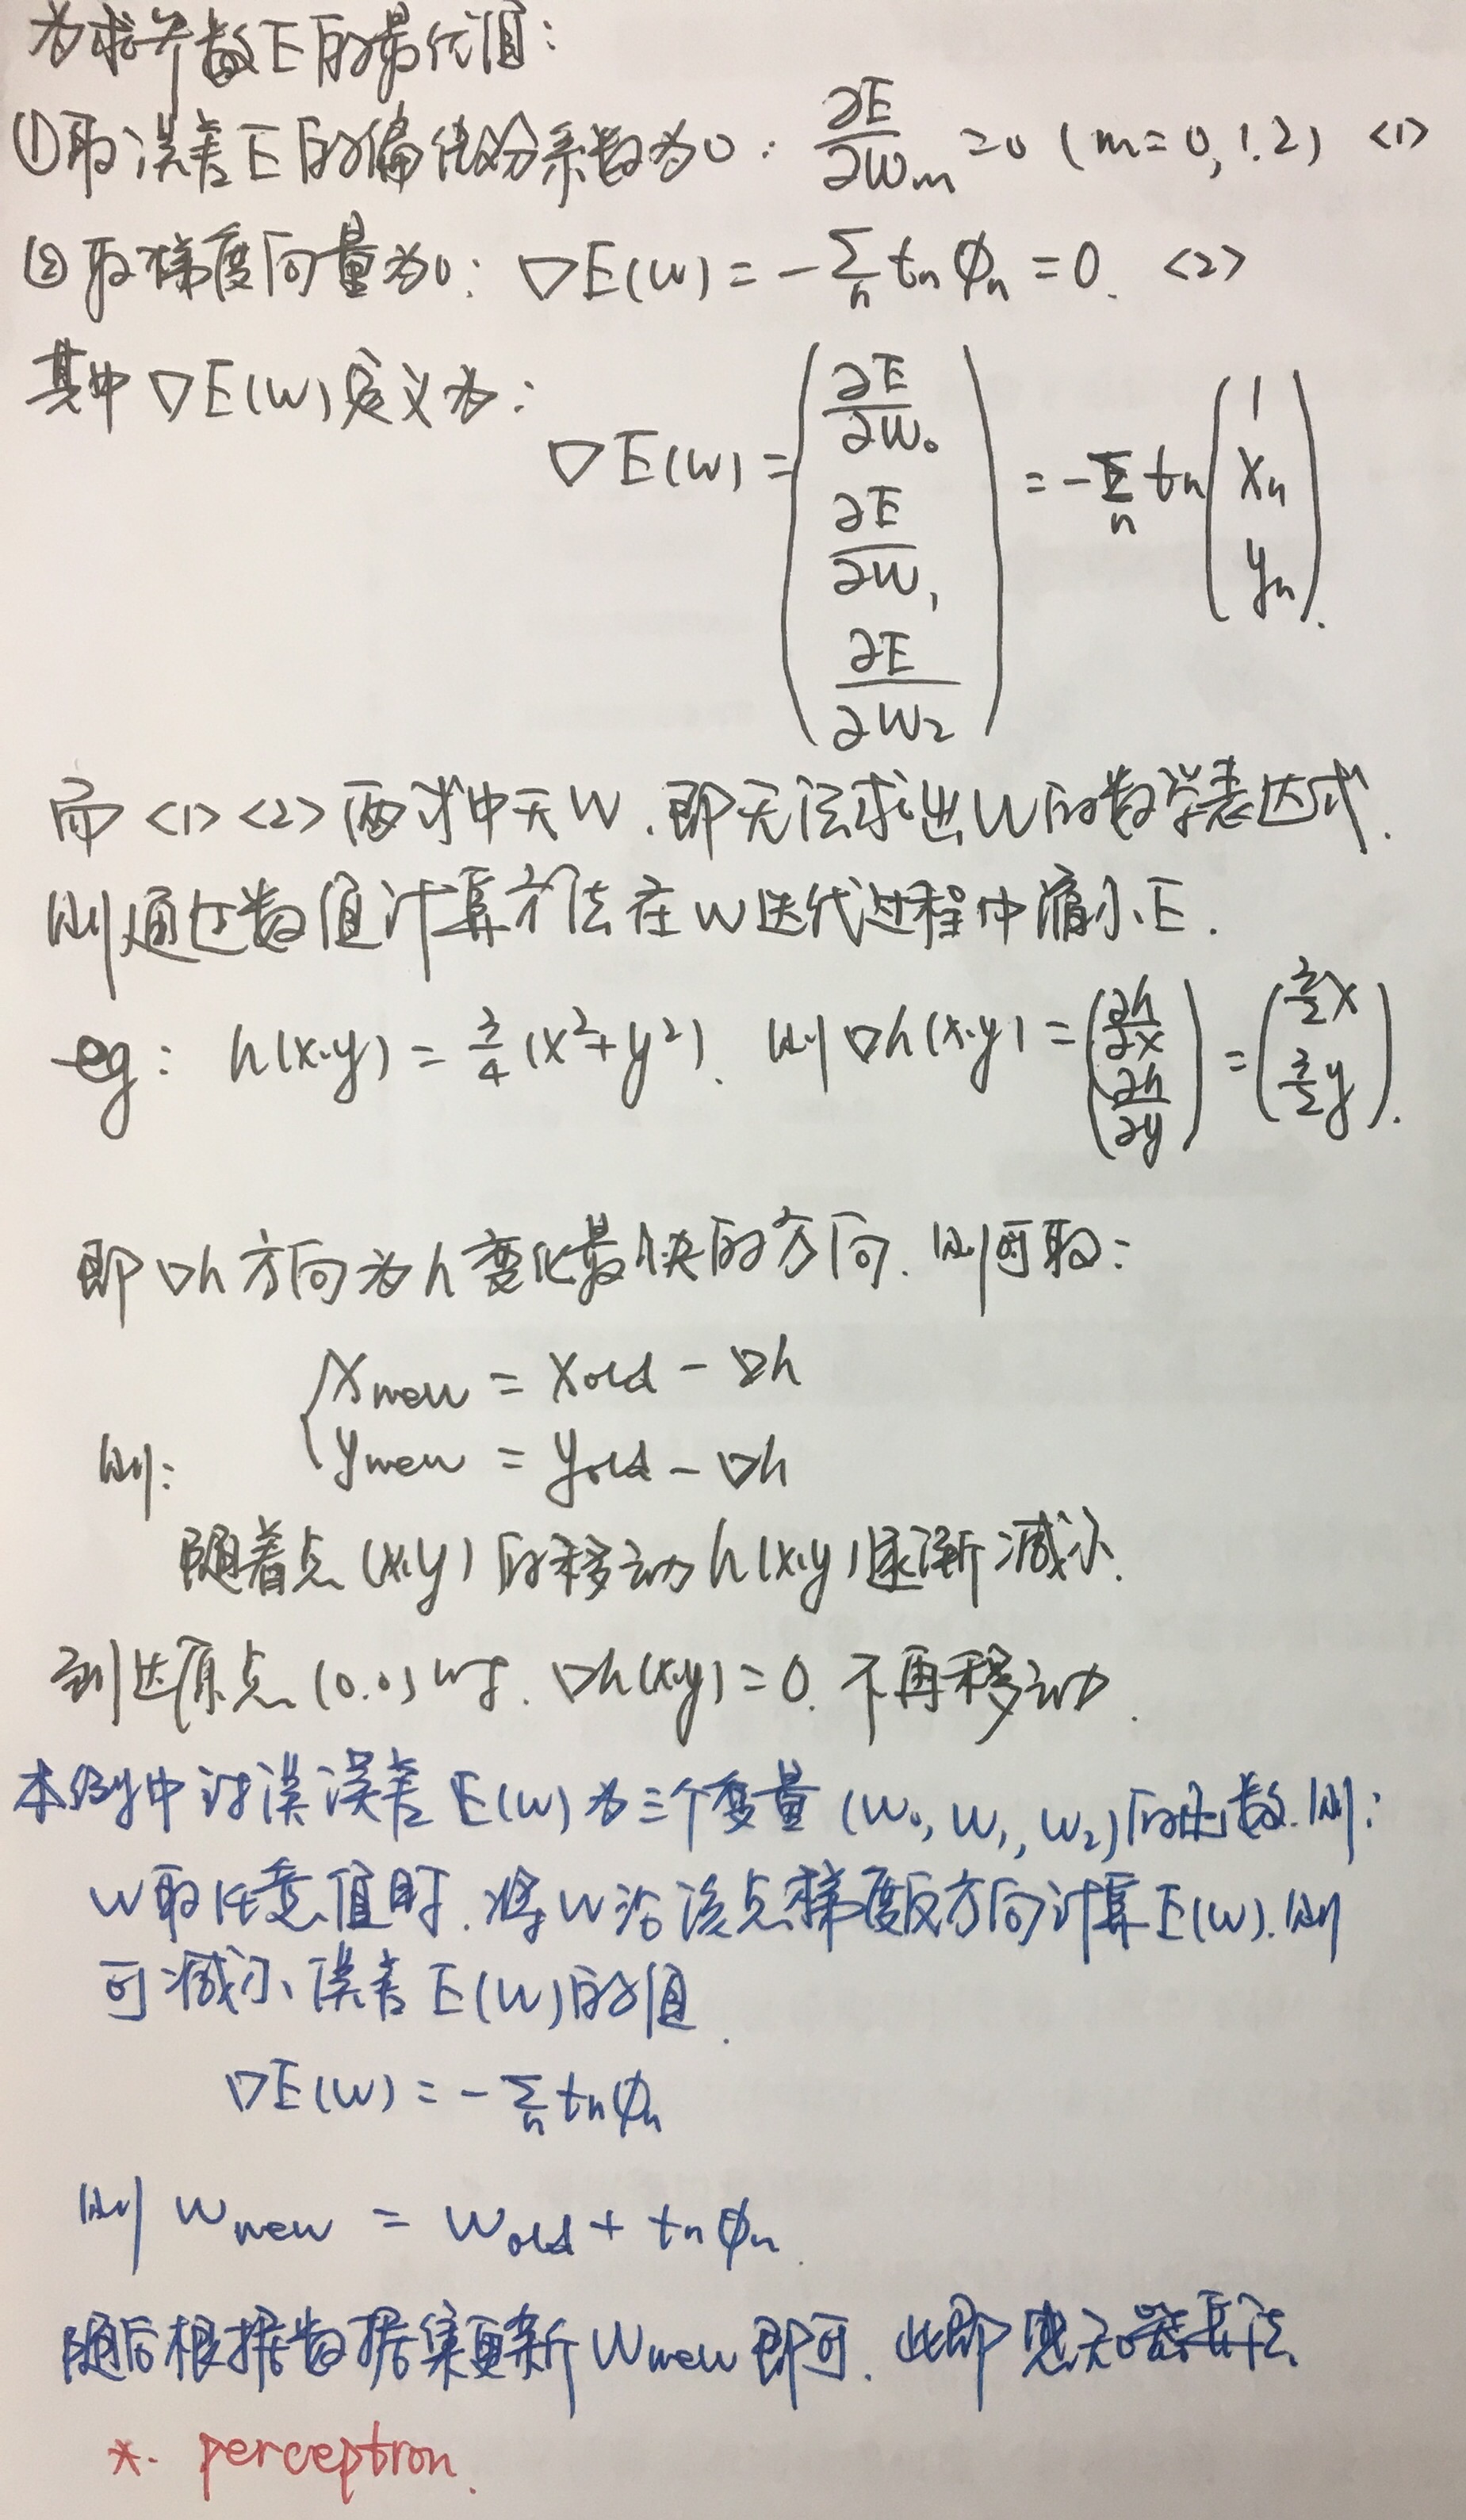 为求参数E的最优值:
①取误差E的偏微分系数为0: ∂E/∂Wm =0 (m=0,1.2) <1>
②取梯度向量为0: ∇E(W) = -∑n tn ϕn = 0. <2>
其中∇E(W)定义为:
∇E(W) = (∂E/∂W0 ∂E/∂W1 ∂E/∂W2) = -∑n tn (1 xn yn).
而<1><2>两式中无W.即无法求出W的数学表达式.
则通过数值计算方法在W迭代过程中减小E.
eg: h(x.y) = 3/4(x²+y²). 则∇h(x.y) = (∂h/∂x ∂h/∂y) = (3/2x 3/2y).
即∇h方向为h变化最快的方向.则可取:
{xnew = xold - ∇h
则: ynew = yold - ∇h
随着点(x,y)的移动h(x,y)逐渐减小.
到达原点(0.0)时.∇h(x,y)=0.不再移动.
本例中误差E(W)为三个变量(W0,W1,W2)的函数.则:
W取任意值时.将W沿该点梯度反方向计算E(W).则
可减小误差E(W)的值.
∇E(W) = -∑n tnϕn
则Wnew = Wold + tnϕn.
随后根据数据集更新Wnew即可.此即感知器算法
*. perceptron.